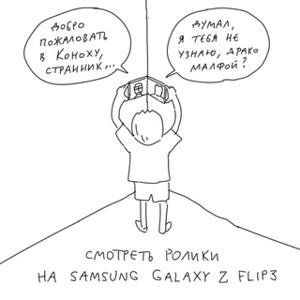 ДОБРО
ПОЖАЛОВАТЬ
В КОНОХУ,
СТРАННИК...
ДУМАЛ,
Я ТЕБЯ НЕ
УЗНАЮ, ДРАКО
МАЛФОЙ?
СМОТРЕТЬ РОЛИКИ
НА SAMSUNG GALAXY Z FLIP3